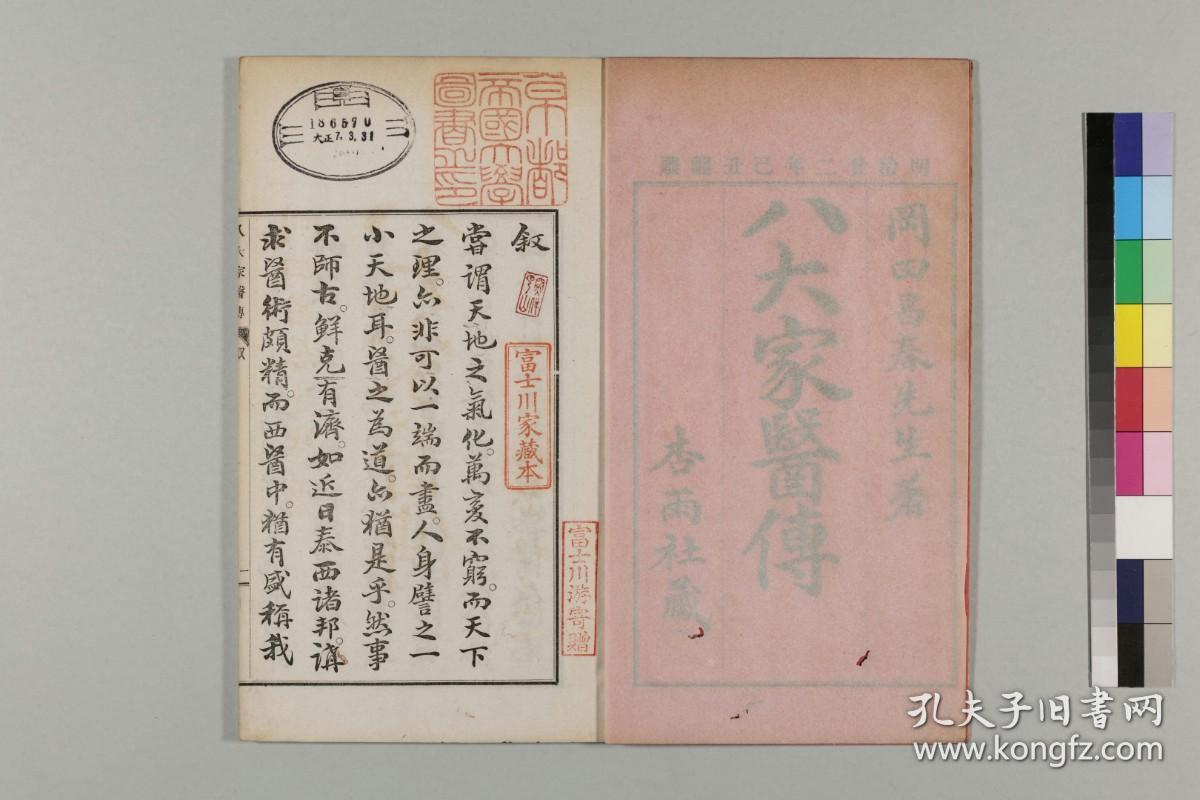 明治廿二年己丑龍鐫
岡田昌春先生著
八大家醫傳
杏雨社藏
京都
帝國大學
圖書之印
186570
大正7.3.31
叙
富士川家藏本
富士川游寄贈
嘗謂天地之氣化。萬变不窮。而天下
之理。亦非可以一端而盡。人身譬之一
小天地耳。醫之為道。亦猶是乎。然事
不師古。鮮克有濟。如近日泰西諸邦。講
求醫術頗精。而西醫中。猶有盛稱我
八大家醫傳 叙
孔夫子旧书网
www.kongfz.com